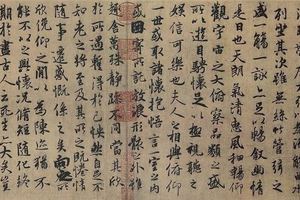 列坐其次雖無絲竹管弦之
盛一觴一詠亦足以暢敘幽情
是日也天朗氣清惠風和暢仰
觀宇宙之大俯察品類之盛
所以遊目騁懷足以極視聽之
娛信可樂也夫人之相與俯仰
一世或取諸懷抱悟言一室之內
或因寄所託放浪形骸之外雖
趣舍萬殊靜躁不同當其欣
於所遇暫得於己怏然自足不
知老之將至及其所之既惓情
隨事遷感慨係之矣向之所
欣俛仰之間以為陳迹猶不
能不以之興懷況脩短隨化終
期於盡古人云死生亦大矣豈